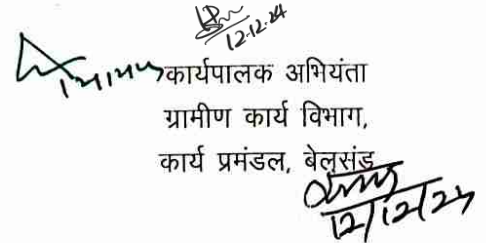 12.12.24
कार्यपालक अभियंता
ग्रामीण कार्य विभाग,
कार्य प्रमंडल, बेलसंड
12/12/24